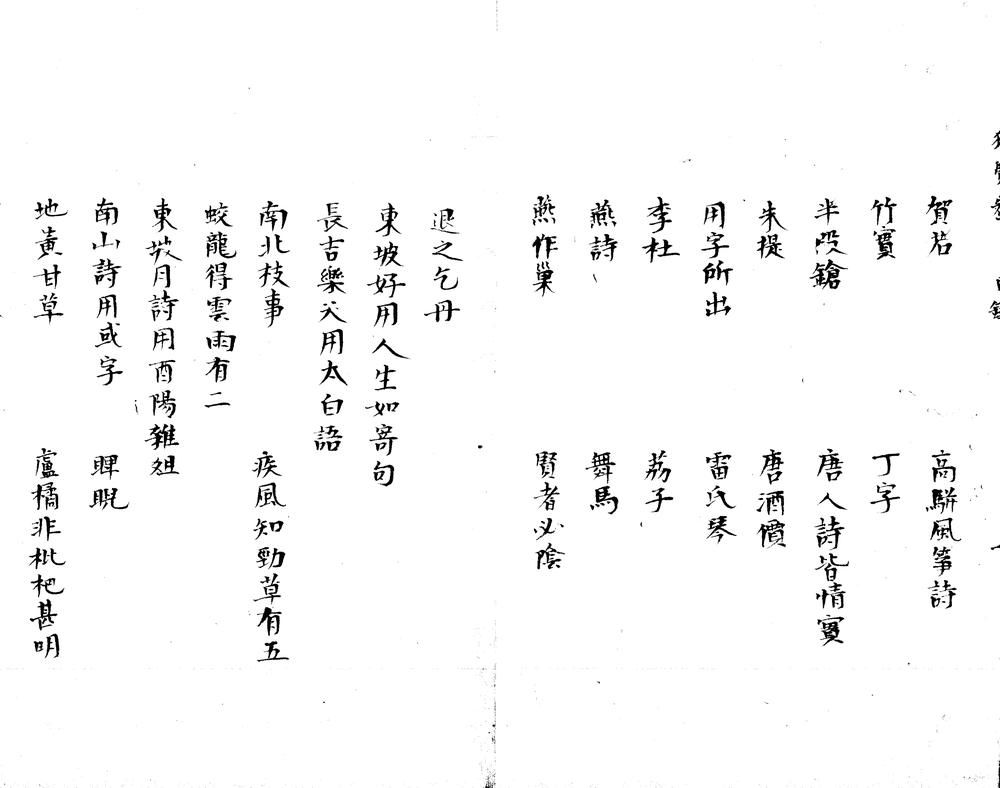 賀若
高駢風箏詩
竹實
丁字
半段鎗
唐人詩皆情實
朱提
唐酒價
用字所出
雷氏琴
李杜
荔子
燕詩
舞馬
燕作巢
賢者必陰
退之乞丹
東坡好用人生如寄句
長吉樂天用太白語
南北枝事
疾風知勁草有五
蛟龍得雲雨有二
東坡月詩用酉陽雜俎
南山詩用或字
睥睨
地黃甘草
盧橘非枇杷甚明